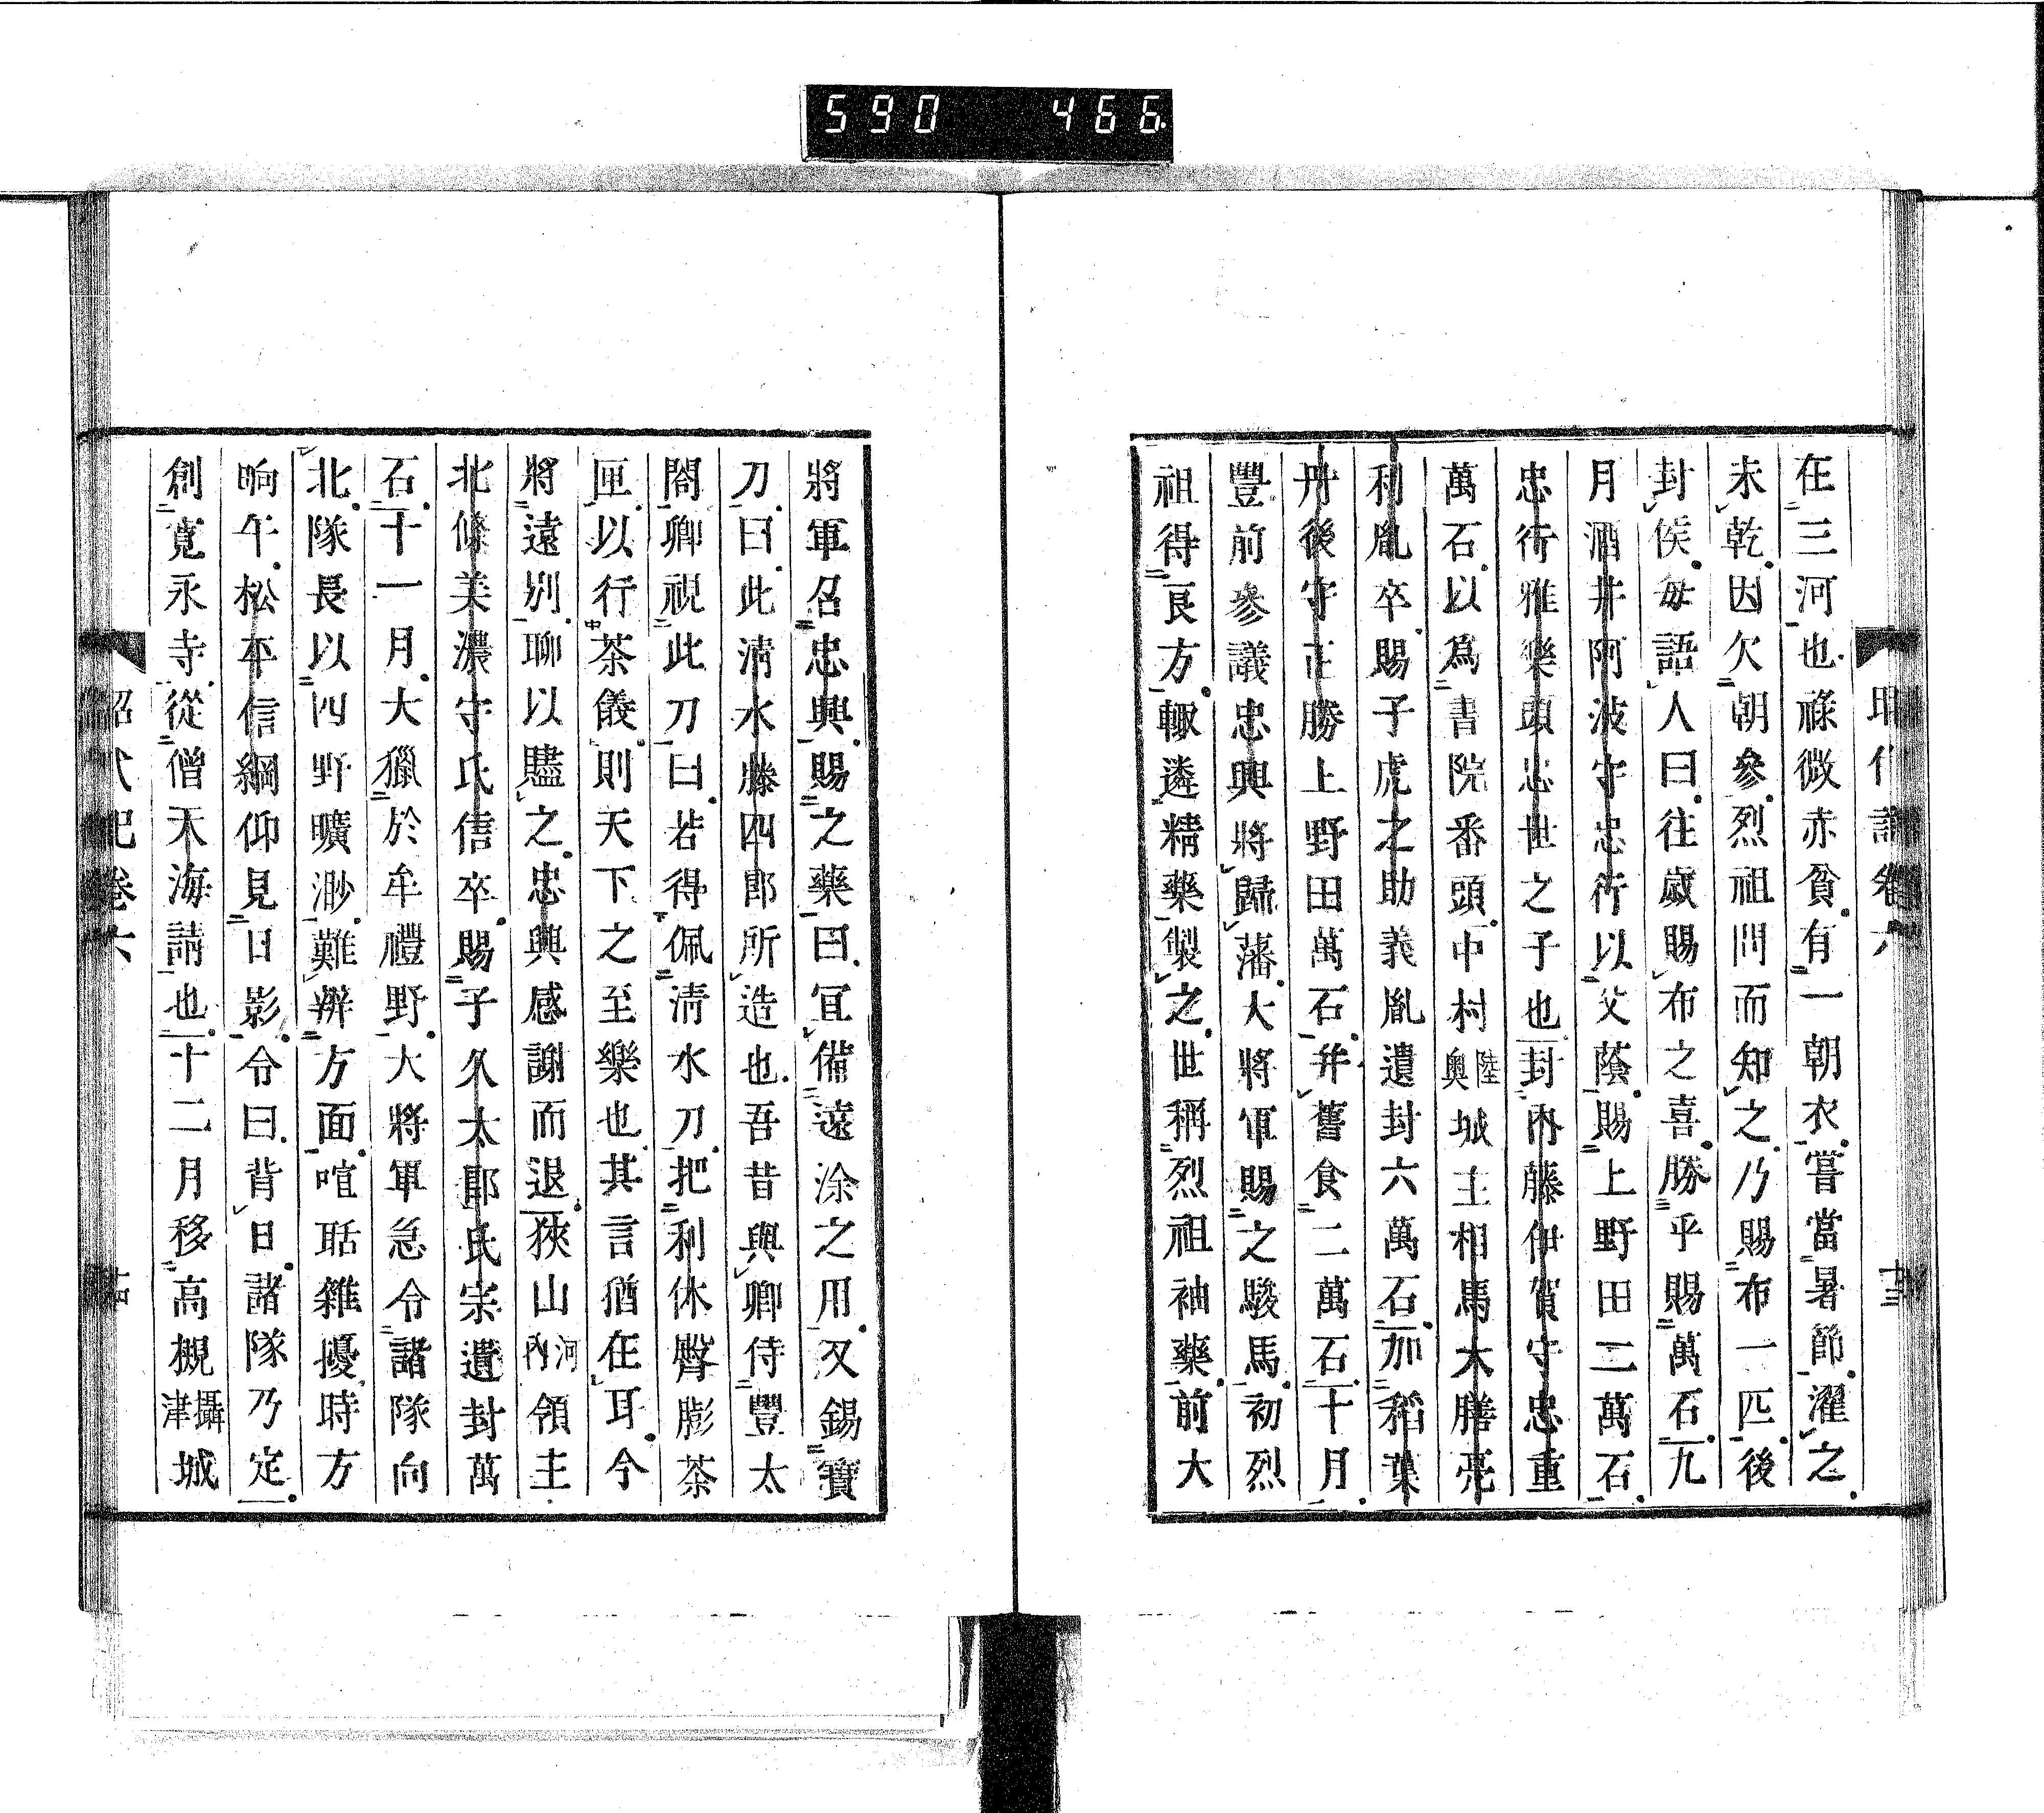 590 466
在三河也祿微赤貧有一朝衣嘗當暑節濯之
未乾因欠朝參烈祖問而知之乃賜布一匹後
封侯毎語人曰往歲賜布之喜勝乎賜萬石九
月酒井阿波守忠行以父蔭賜上野田二萬石
忠行雅樂頭忠世之子也封內藤伊賀守忠重
萬石以爲書院番頭中村陸奧城主相馬大膳亮
利胤卒賜子虎之助義胤遺封六萬石加稻葉
丹後守正勝上野田萬石并舊食二萬石十月
豐前參議忠興將歸藩大將軍賜之駿馬初烈
祖得良方輙遴精藥製之世稱烈祖袖藥前大
將軍召忠興賜之藥曰宜備遠涂之用又錫寶
刀曰此淸水藤四郎所造也吾昔與卿侍豐太
閤卿視此刀曰若得佩淸水刀把利休臀膨茶
匣以行茶儀則天下之至樂也其言猶在耳今
將遠別聊以贐之忠興感謝而退狹山河內領主
北條美濃守氏信卒賜子久太郎氏宗遺封萬
石十一月大獵於牟禮野大將軍急令諸隊向
北隊長以四野曠渺難辨方面喧聒雜擾時方
晌午松平信綱仰見日影令曰背日諸隊乃定
創寬永寺從僧天海請也十二月移高槻攝津城
卷六